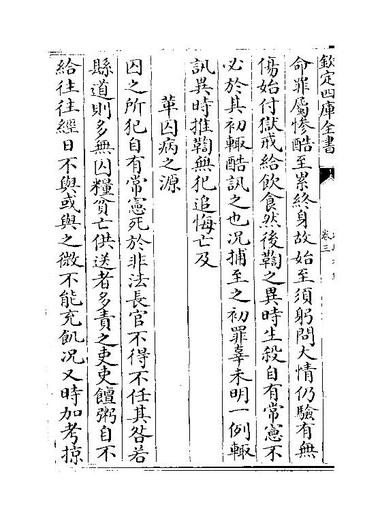 欽定四庫全書
卷三
命罪屬慘酷至累終身故始至須躬問大情仍驗有無
傷始付獄戒給飲食然後鞫之異時生殺自有常憲不
必於其初輒酷訊之也况捕至之初罪辜未明一例輒
訊異時推鞫無犯追悔亡及
革囚病之源
囚之所犯自有常憲死於非法長官不得不任其咎若
縣道則多無囚糧貧亡供送者多責之吏吏饘粥自不
給往往經日不與或與之微不能充飢况又時加考掠